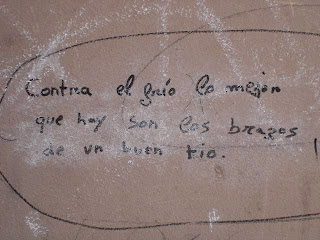 Contra el frío lo mejor
que hay son los brazos
de un buen tío.